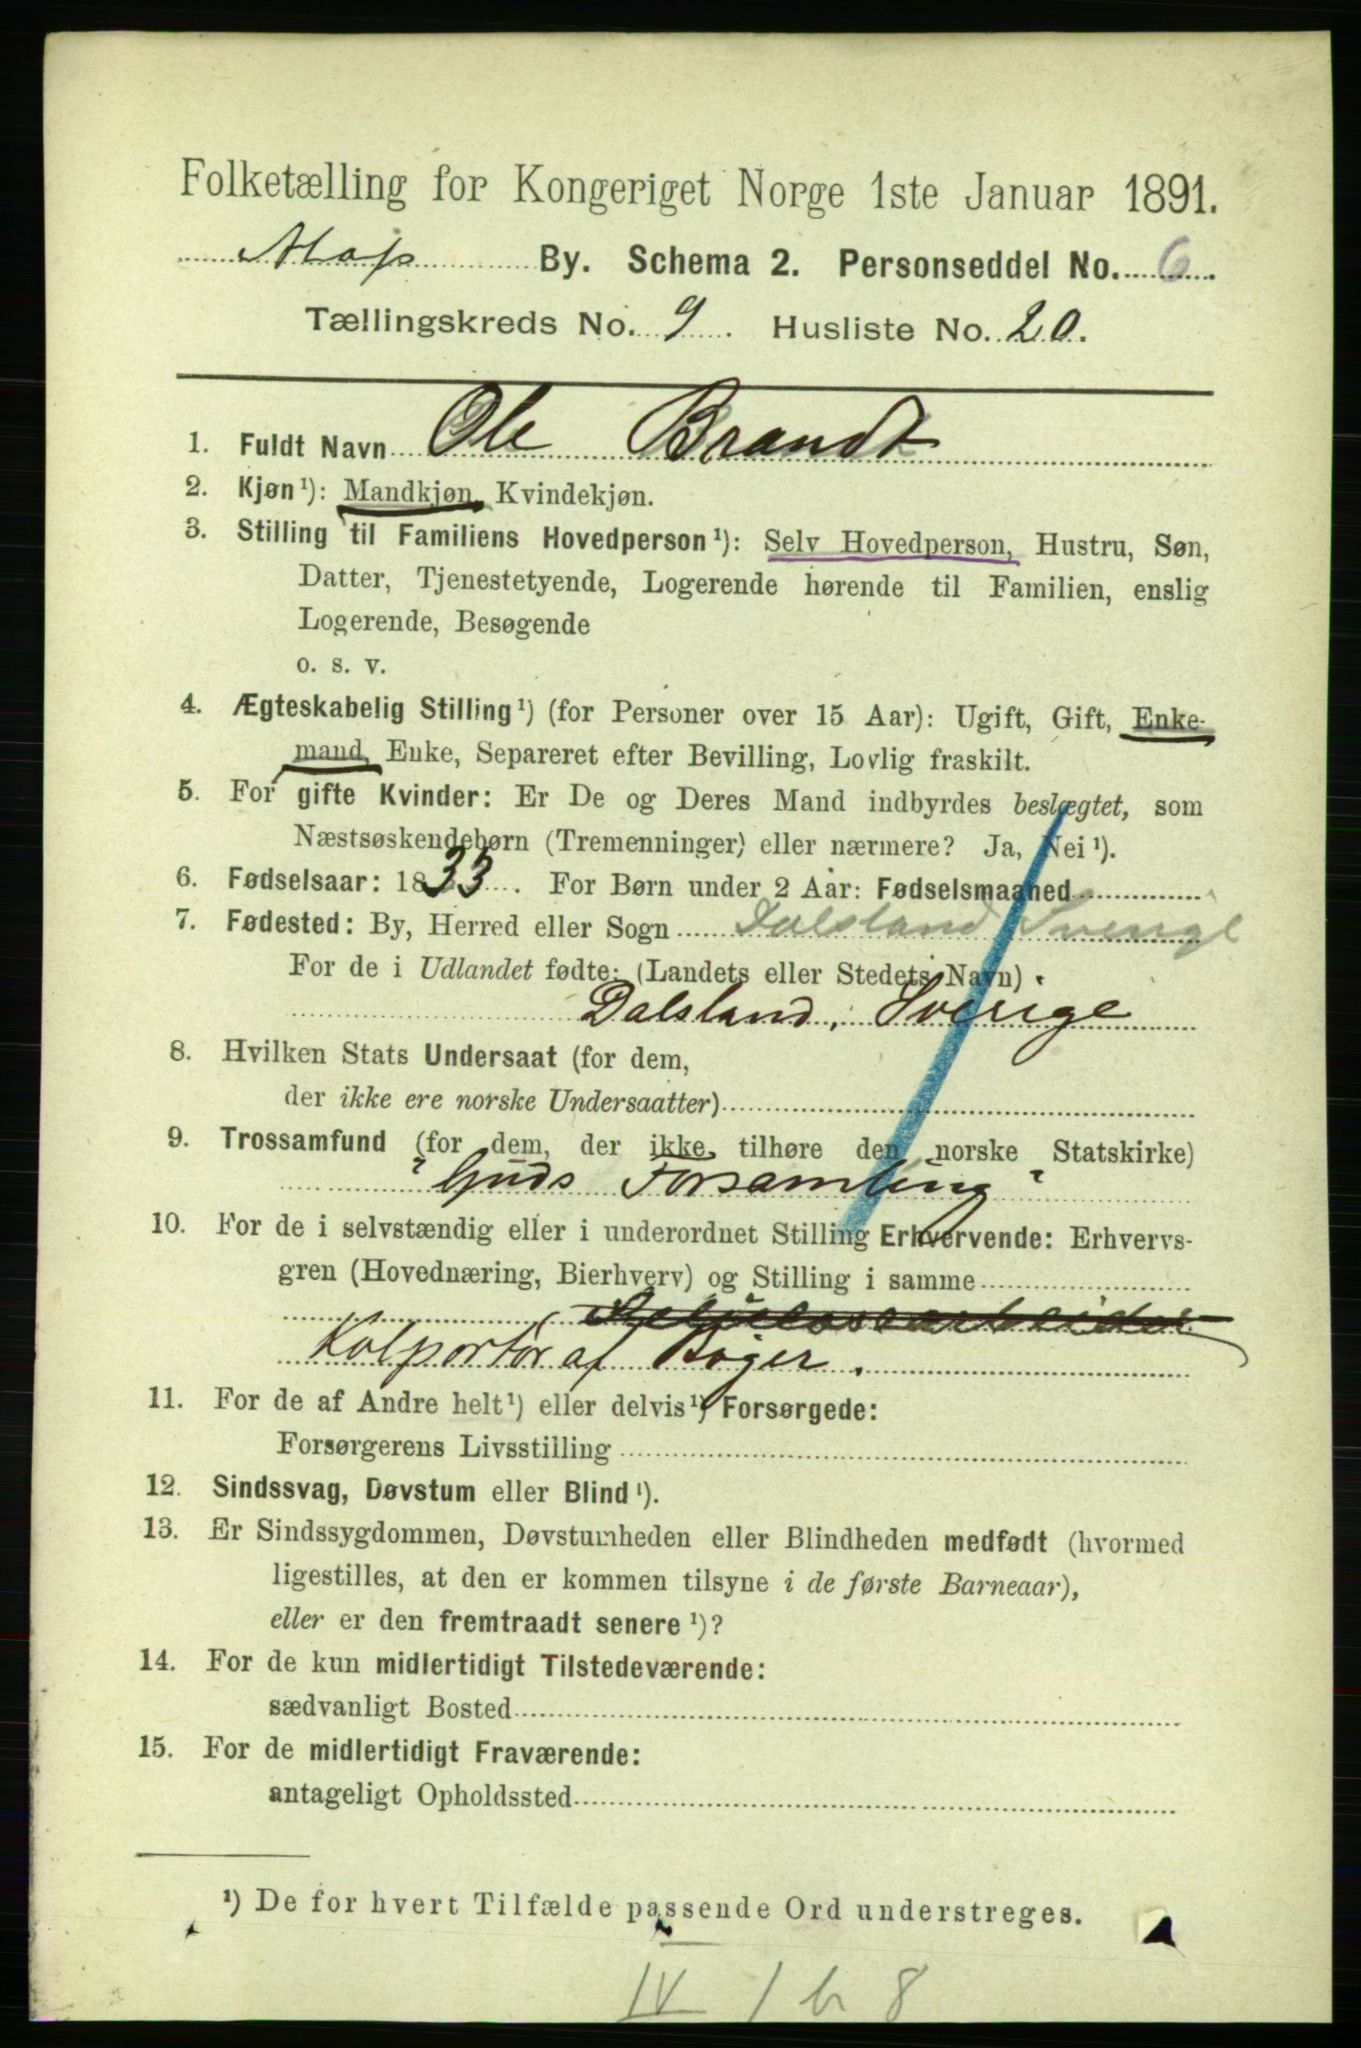 Folketælling for Kongeriget Norge 1ste Januar 1891.
Moss By. Schema 2. Personseddel No. 6.
Tællingskreds No. 9. Husliste No. 20.
1. Fuldt Navn Ole Brandt
2. Kjøn¹): Mandkjøn, Kvindekjøn.
3. Stilling til Familiens Hovedperson¹): Selv Hovedperson, Hustru, Søn,
Datter, Tjenestetyende, Logerende hørende til Familien, enslig
Logerende, Besøgende
o. s. v.
4. Ægteskabelig Stilling¹) (for Personer over 15 Aar): Ugift, Gift, Enke-
mand, Enke, Separeret efter Bevilling, Lovlig fraskilt.
5. For gifte Kvinder: Er De og Deres Mand indbyrdes beslægtet, som
Næstsøskendebørn (Tremenninger) eller nærmere? Ja, Nei¹).
6. Fødselsaar: 1833. For Børn under 2 Aar: Fødselsmaaned
7. Fødested: By, Herred eller Sogn Dalsland Sverige
For de i Udlandet fødte: (Landets eller Stedets Navn)
Dalsland, Sverige
8. Hvilken Stats Undersaat (for dem,
der ikke ere norske Undersaatter)
9. Trossamfund (for dem, der ikke tilhøre den norske Statskirke)
"Guds Forsamling"
10. For de i selvstændig eller i underordnet Stilling Erhvervende: Erhvervs-
gren (Hovednæring, Bierhverv) og Stilling i samme
Kolportør af Bøger.
11. For de af Andre helt¹) eller delvis¹) Forsørgede:
Forsørgerens Livsstilling
12. Sindssvag, Døvstum eller Blind¹).
13. Er Sindssygdommen, Døvstumheden eller Blindheden medfødt (hvormed
ligestilles, at den er kommen tilsyne i de første Barneaar),
eller er den fremtraadt senere¹)?
14. For de kun midlertidigt Tilstedeværende:
sædvanligt Bosted
15. For de midlertidigt Fraværende:
antageligt Opholdssted
¹) De for hvert Tilfælde passende Ord understreges.
IV 1 b 8